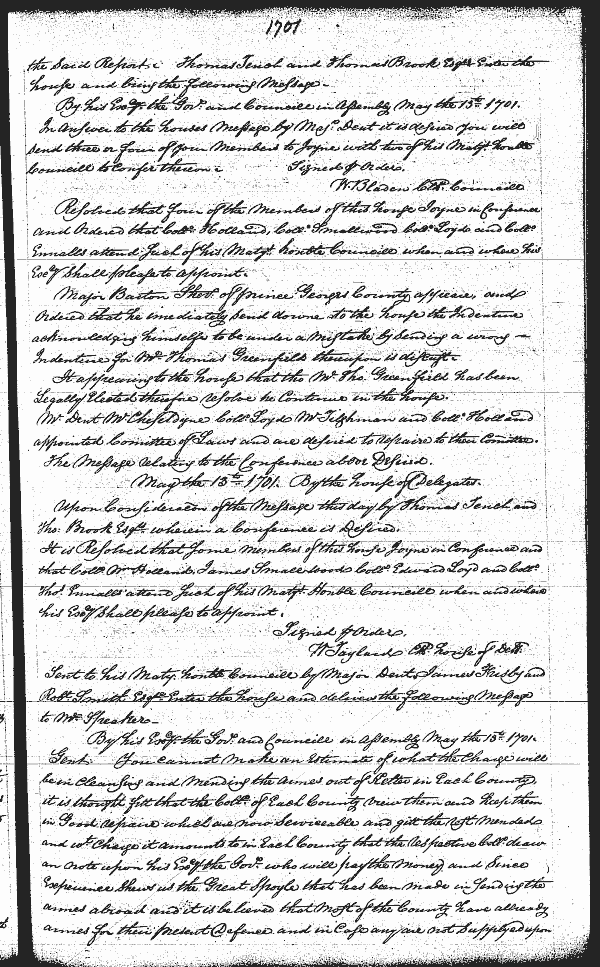 1701
the Said Report. Thomas Tench and Thomas Brook Esqrs Enter the
house and bring the following Message.
By his Excy. the Govr. and Councill in Assembly May the 15th 1701.
In Answer to the houses Message by Mr. Dent it is desired you will
send three or four of your Members to Joyne with two of his Matys honble
Councill to Confer thereon. Signed p Order.
W. Bladen Clk. Councill
Resolved that four of the Members of this house Joyne in Conference
and Ordered that Collo. Holland, Collo. Smallwood Collo. Loyd and Collo.
Ennalls attend Such of his Matys. honble Councill when and where his
Excy Shall please to appoint.
Major Barton Sher. of prince Georges County appears, and
Ordered that he imediately Send downe to the house the Indenture
acknowledging himselfe to be under a Mistake by Sending a wrong
Indenture for Mr. Thomas Greenfield thereupon is discust.
It appearing to the house that the Mr. Tho. Greenfield has been
Legally Elected therefore resolve he Continue in the house.
Mr. Dent Mr. Cheseldyne Collo. Loyd Mr Tilghman and Collo. Holland
appointed Comittee of Laws and are desired to repaire to their Comittee.
The Message relating to the Conference above Desired.
May the 15th. 1701. By the house of Delegates.
Upon Consideration of the Message this day by Thomas Tench and
Tho: Brook Esqrs. wherein a Conference is Desired.
It is Resolved that Some members of this house Joyne in Conference and
that Collo. Wm Holland, James Smallwood Collo. Edward Loyd and Collo.
Tho. Ennalls attend Such of his Matys. Honble Councill when and where
his Excy Shall please to appoint.
Signed p Order.
W Taylard Clk. house of Dell.
Sent to his Matys. honble Councill by Major Dent James Frisby and
Robt. Smith Esqrs. Enter the house and deliver the following Message
to Mr. Speaker.
By his Excy. the Govr. and Councill in Assembly May the 15th. 1701.
Gent. You cannot make an Estimate of what the Charge will
be in Cleansing and Mending the Armes out of Kilter in Each County,
it is thought fitt that the Collo. of Each County view them and keep them
in Good repaire which are now Serviceable and gitt the rest Mended
and wt. Charge it amounts to in Each County that the respective Collo. draw
an note upon his Excy the Govr. who will pay the Money and Since
Experience Shews us the Great Spoyle that has been made in Sending the
armes abroad and it is believed that Most of the County have allready
armes for their present Defence and in Case any are not Supplyed upon